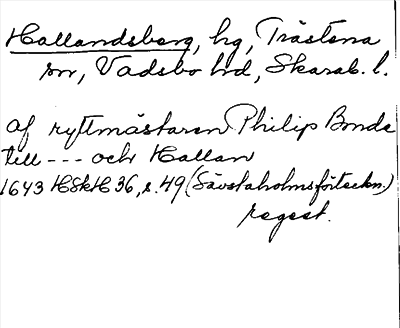 Hallandsberg, hg, Trästena
sn, Vadsbo hd, Skarab. l.
af ryttmästaren Philip Bonde
till --- och Hallan
1643 HSkH 36, s. 49 (Sävstaholmsförteckn.)
regest.